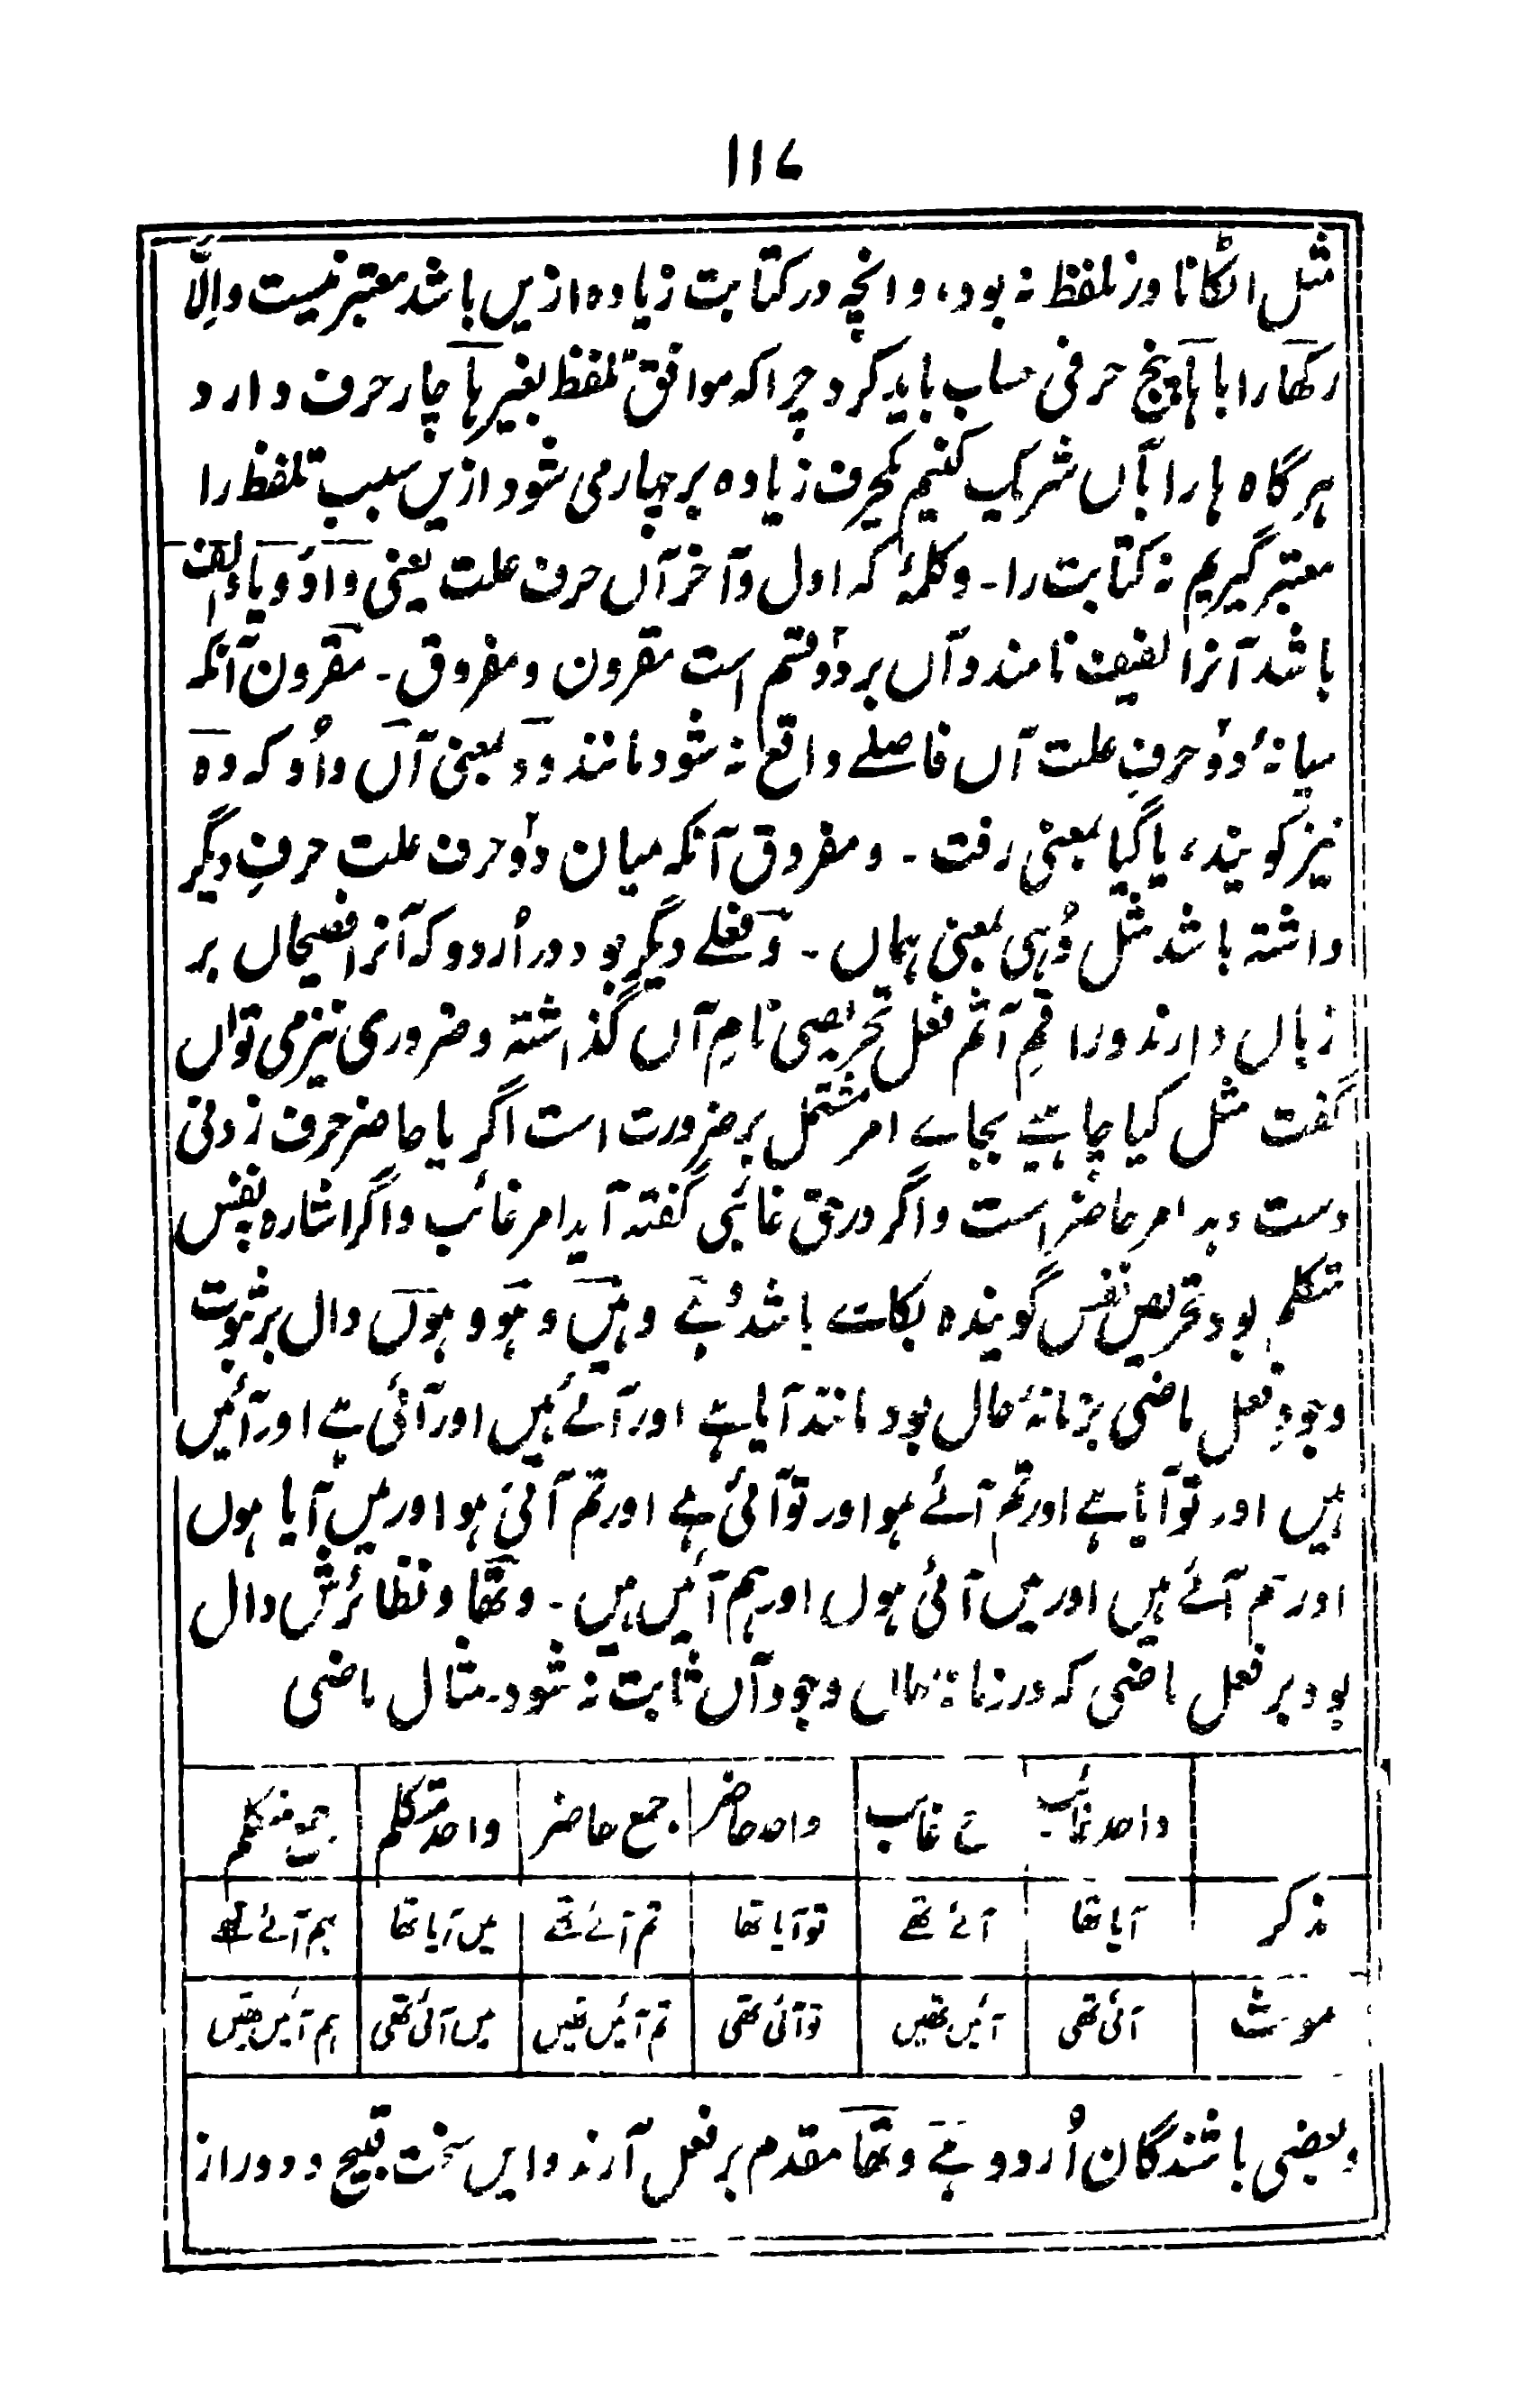 ۱۱۷
مثل اٹکانا وزن تلفظ نہ بود، و انچہ در کتابت زیادہ ازیں باشد معتبر نیست و اِلّا
رکھا را با ہا پنج حرفی حساب باید کرد چرا کہ موافق تلفظ بغیر ہا چار حرف دارد
ہر گاہ ہا را بآں شریک کنیم یکحرف زیادہ بر چہار می شود ازیں سبب تلفظ را
معتبر گیریم نہ کتابت را۔ و کلمۂ کہ اول و آخر آں حرف علت یعنی واو و یا و الف
باشد آنرا لفیف نامند و آں بر دو قسم است مقرون و مفروق۔ مقرون آنکہ
میانۂ دو حرفِ علت آں فاصلے واقع نہ شود مانند وو بمعنی آں و اُو کہ وہ
نیز گویند، یا گیا بمعنی رفت۔ و مفروق آنکہ میان دو حرف علت حرفِ دیگر
داشتہ باشد مثل وُہی بمعنی ہماں۔ و فعلے دیگر بود در اُردو کہ آنرا فصیحاں بر
زباں دارند و راقمِ آثم فعل تحریصی نامِ آں گذاشتہ و ضروری نیز می تواں
گفت مثل کیا چاہیے بجاے امر مشتمل بر ضرورت است اگر با حاضر حرف زدنی
دست دہد امر حاضر است و اگر در حق غائبی گفتہ آید امر غائب و اگر اشارہ بنفس
متکلم بود تحریص نفس گویندہ بکارے باشد و ہَے و ہیں و ہو و ہوں دال بر ثبوت
وجودِ فعل ماضی بزمانۂ حال بود مانند آیا ہے اور آئے ہیں اور آئی ہے اور آئیں
ہیں اور تو آیا ہے اور تم آئے ہو اور تو آئی ہے اور تم آئی ہو اور میں آیا ہوں
اور ہم آئے ہیں اور میں آئی ہوں اور ہم آئیں ہیں۔ و تھا و نظائرش دال
بود بر فعل ماضی کہ در زمانۂ حال وجود آں ثابت نہ شود۔ مثال ماضی
واحد غائب جمع غائب واحد حاضر جمع حاضر واحد متکلم جمع متکلم
مذکر آیا تھا آئے تھے تو آیا تھا تم آئے تھے میں آیا تھا ہم آئے تھے
مونث آئی تھی آئیں تھیں تو آئی تھی تم آئیں تھیں میں آئی تھی ہم آئیں تھیں
و بعضی باشندگان اُردو ہے و تھا مقدم بر فعل آرند و ایں سخت قبیح و دور از